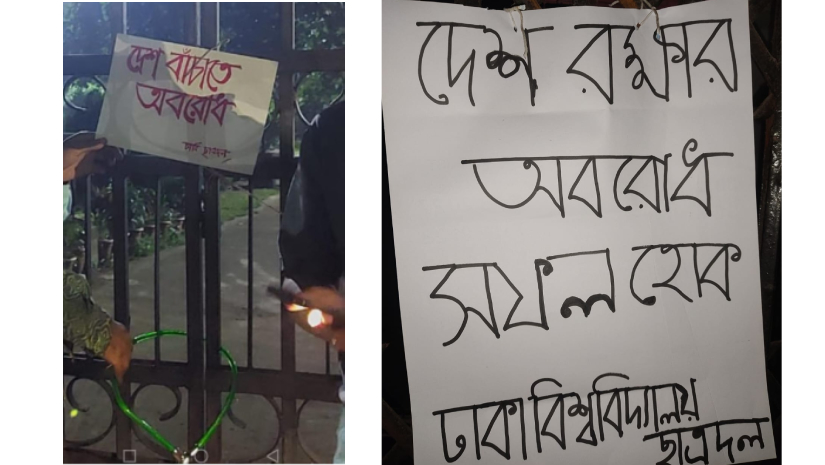 দেশ বাঁচাতে
অবরোধ
দেশ রক্ষার
অবরোধ
সফল হোক
ঢাকা বিশ্ববিদ্যালয়
ছাত্রদল